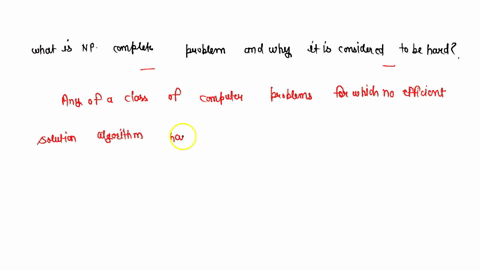 what is NP- complete problem and why it is considered to be hard?
Any of a class of computer problems for which no efficient
solution algorithm ha